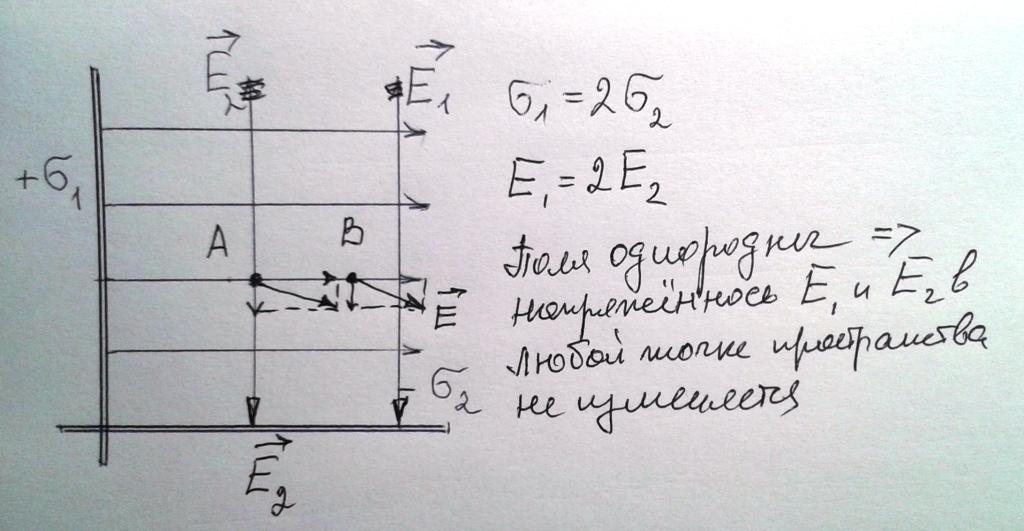 E₂ E₁
+σ₁
A B
E
- σ₂
E₂
σ₁ = 2σ₂
E₁ = 2E₂
Поля однородны =>
напряжённось E₁ и E₂ в
любой точке пространства
не изменяется